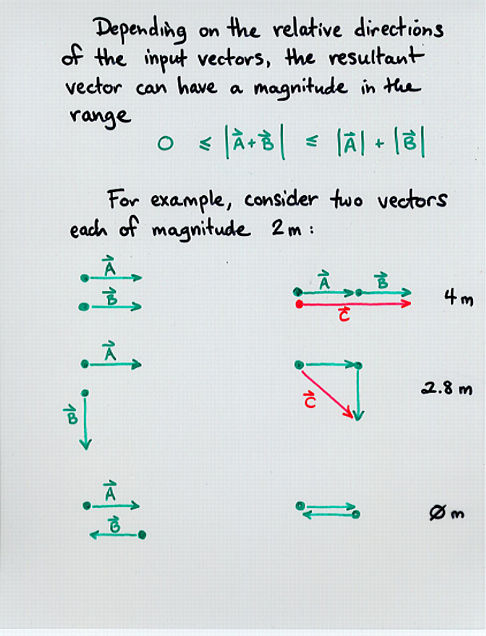 Depending on the relative directions
of the input vectors, the resultant
vector can have a magnitude in the
range
0 ≤ |A⃗+B⃗| ≤ |A⃗| + |B⃗|
For example, consider two vectors
each of magnitude 2m:
A⃗
B⃗
A⃗ B⃗
C⃗
4 m
A⃗
B⃗
C⃗
2.8 m
A⃗
B⃗
Ø m